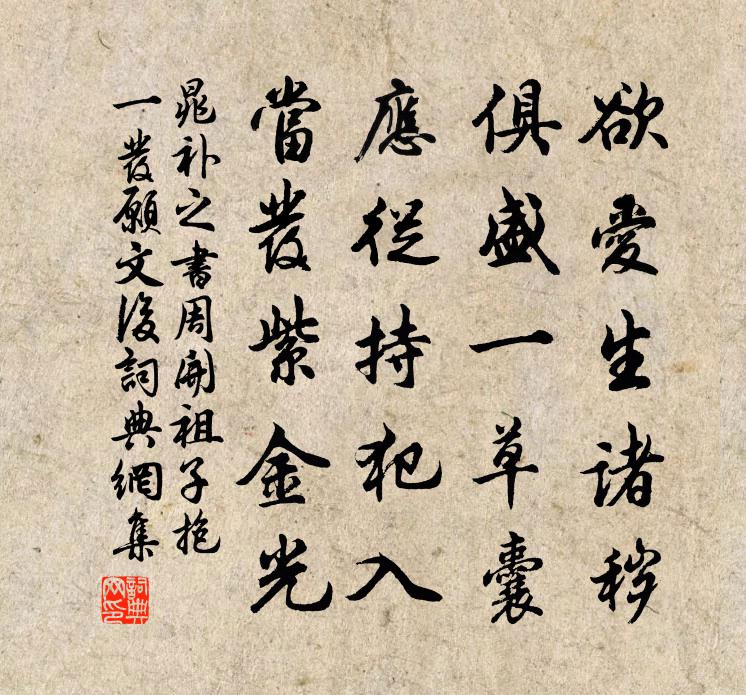 欲愛生諸秽
俱盛一草囊
應從持犯入
當發紫金光
晁补之書周開祖子抱
一發願文後詞典網集
詞典网印